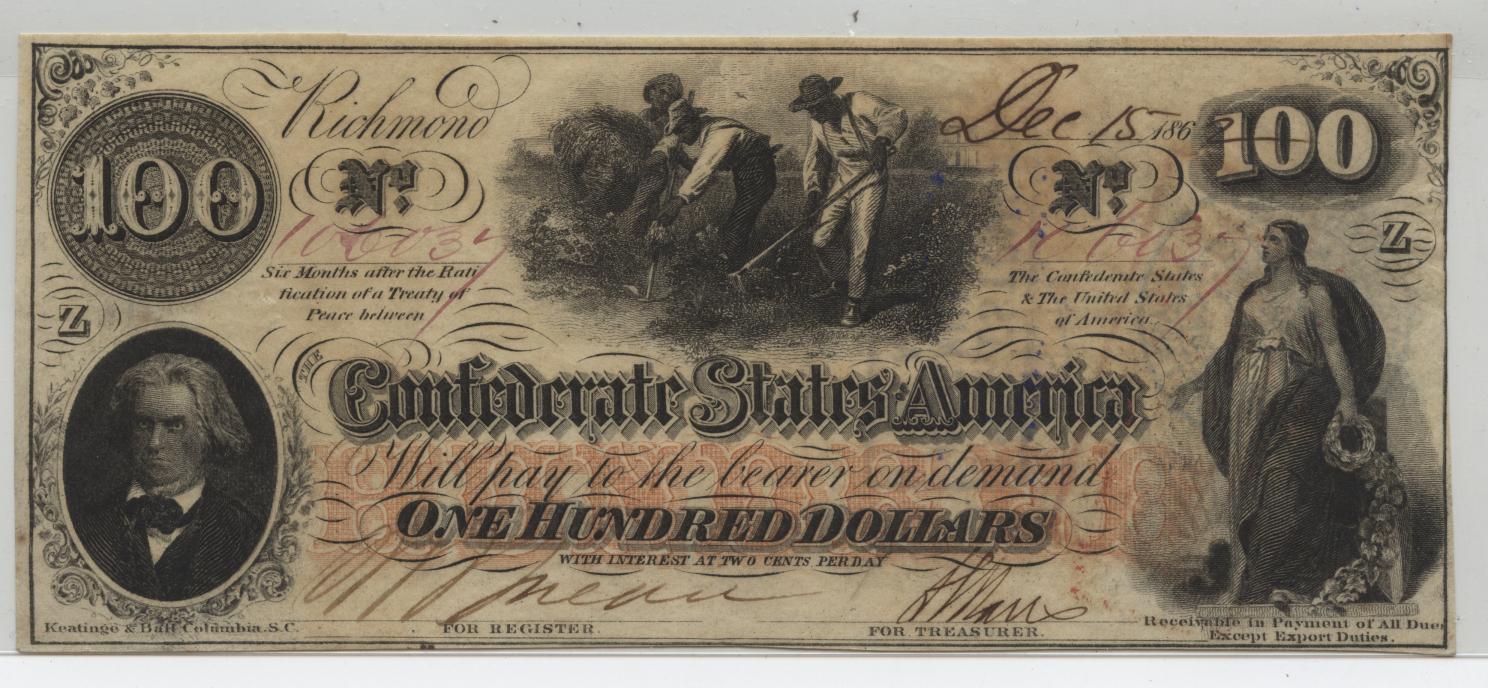 Richmond Dec 15 1862
100 100
No. No.
106037 106037
Six Months after the Rati
fication of a Treaty of
Peace between
The Confederate States
& The United States
of America.
Z Z
THE
Confederate States America
Will pay to the bearer on demand
ONE HUNDRED DOLLARS
WITH INTEREST AT TWO CENTS PER DAY
Keatinge & Ball Columbia. S.C.
FOR REGISTER.
FOR TREASURER.
Receivable in Payment of All Dues
Except Export Duties.